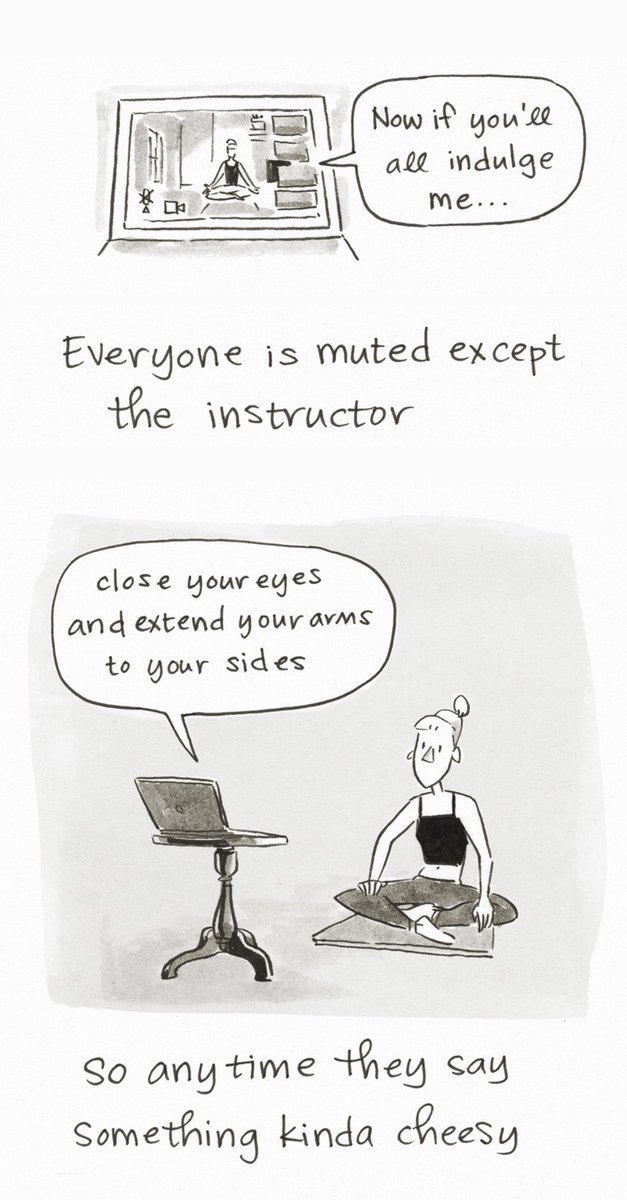 Now if you'll
all indulge
me...
Everyone is muted except
the instructor
close your eyes
and extend your arms
to your sides
So anytime they say
something kinda cheesy